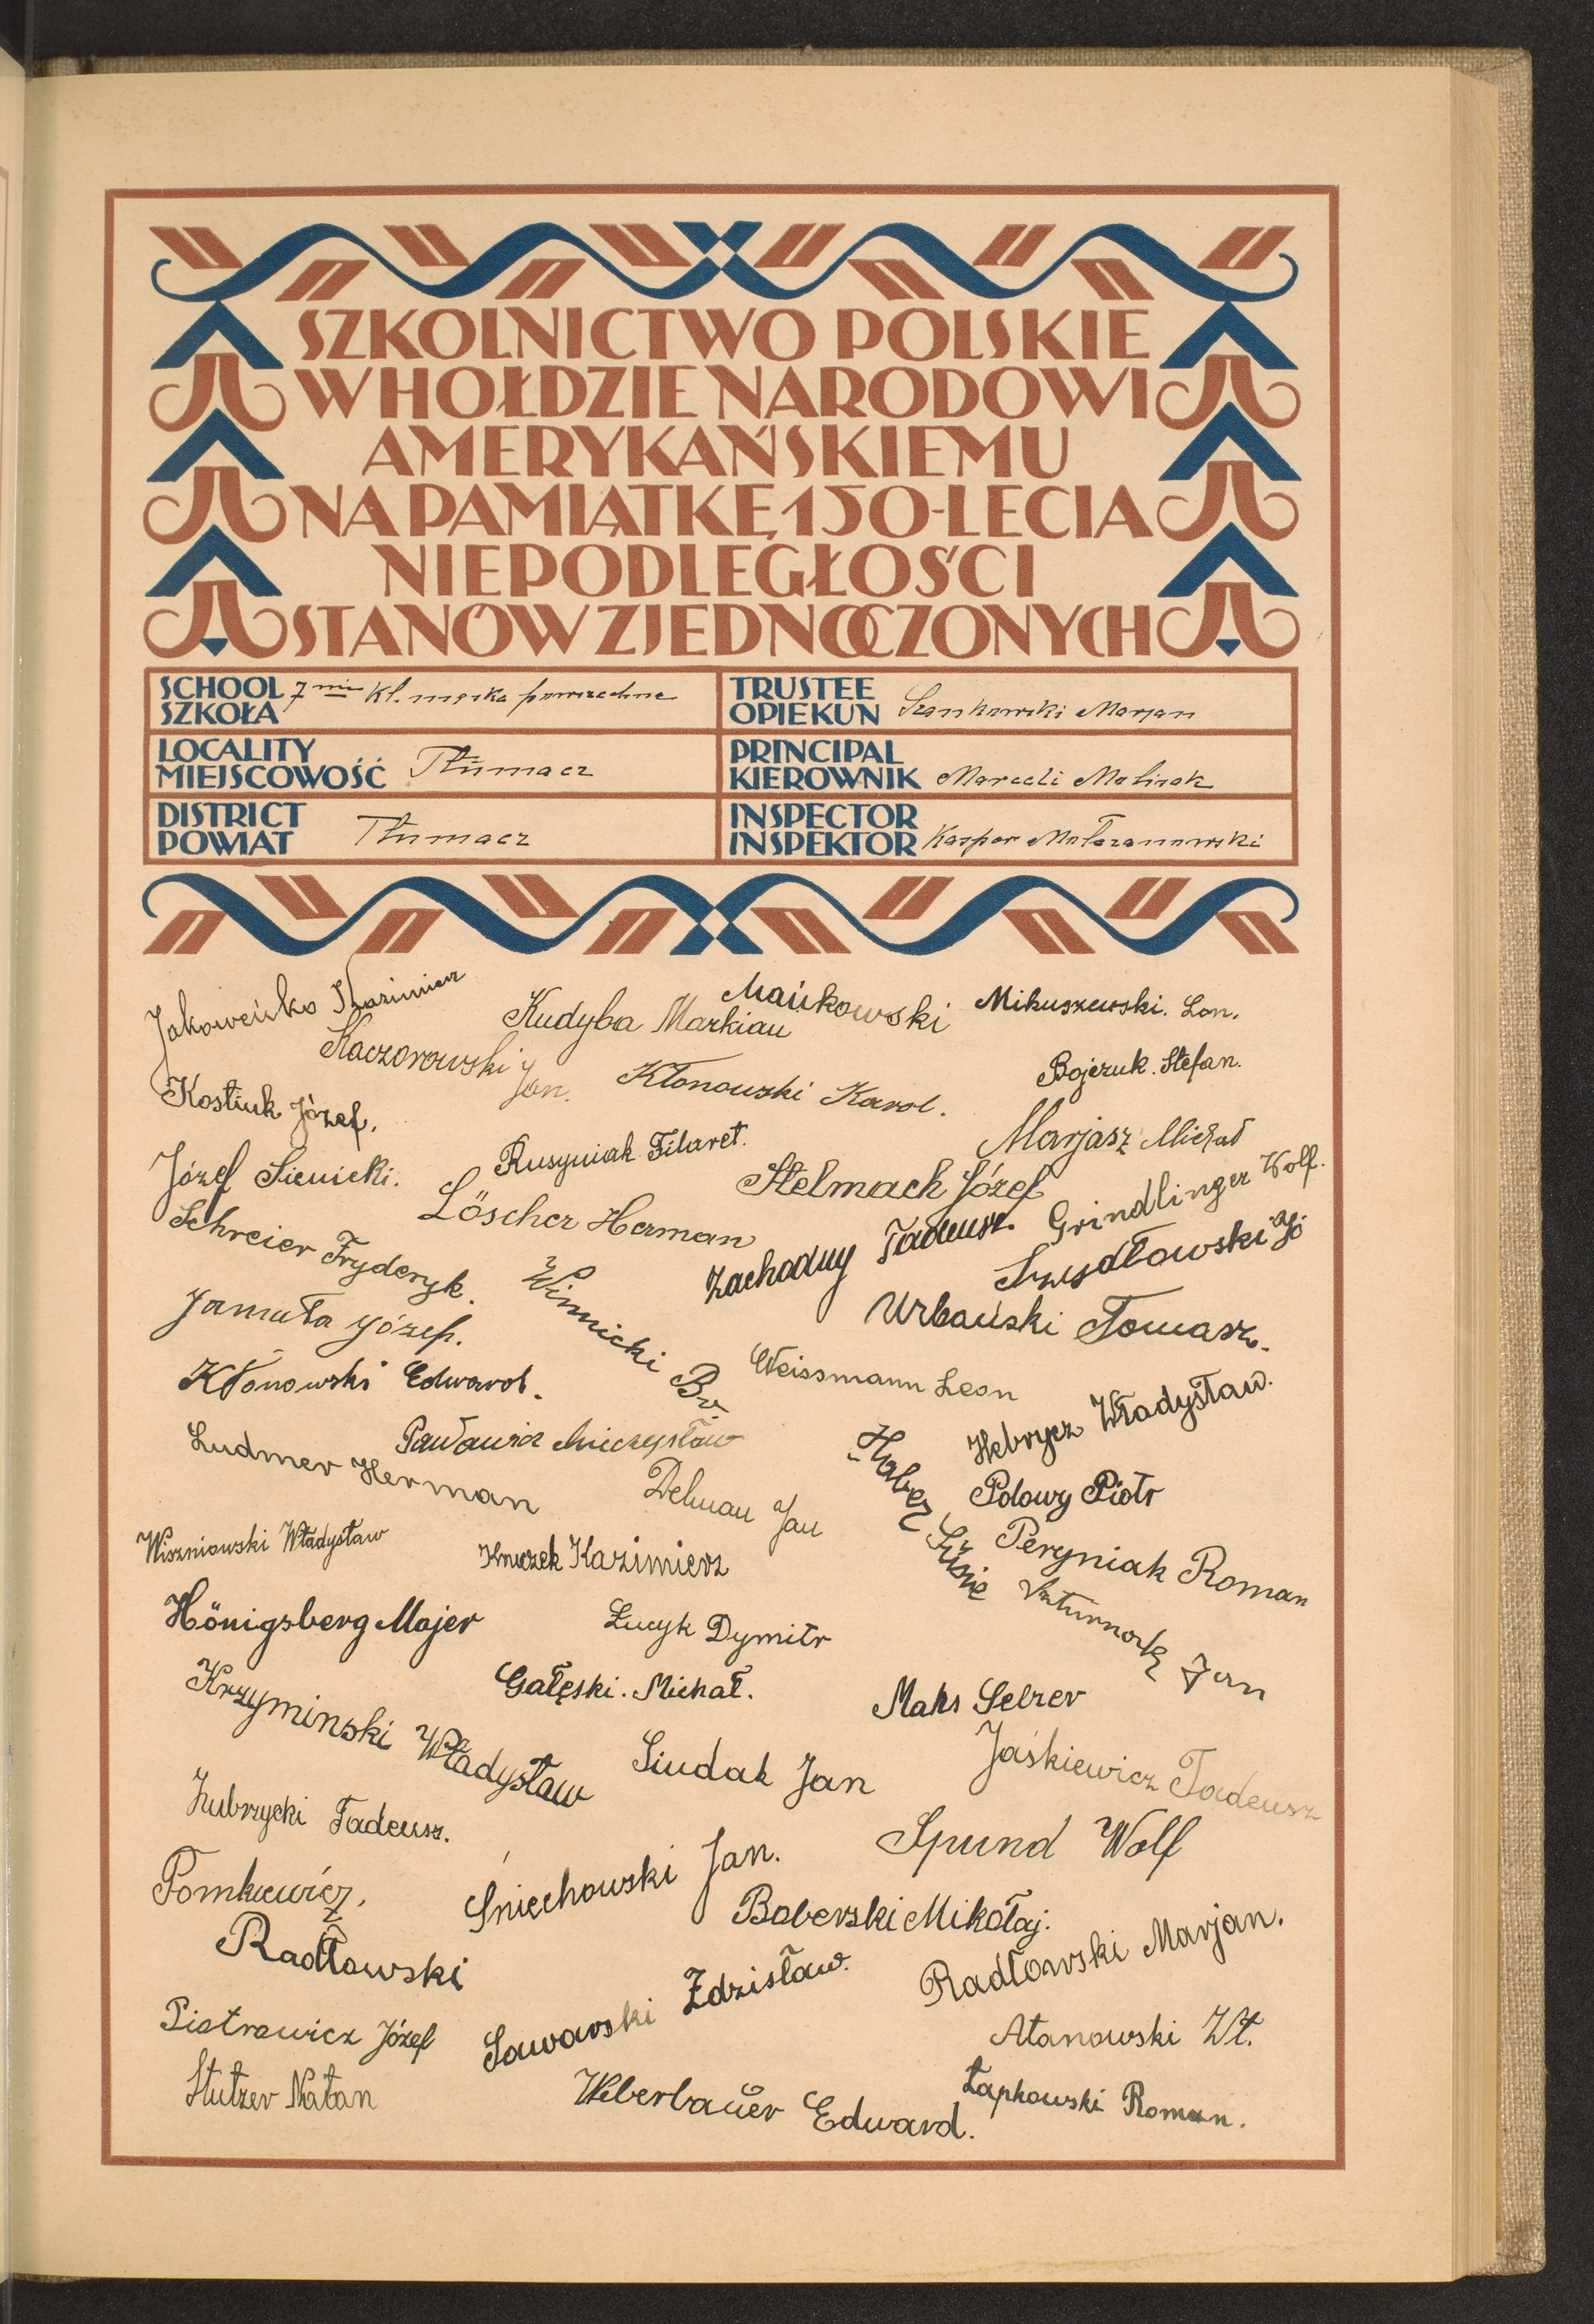 SZKOLNICTWO POLSKIE
W HOŁDZIE NARODOWI
AMERYKAŃSKIEMU
NA PAMIĄTKĘ 150-LECIA
NIEPODLEGŁOŚCI
STANÓW ZJEDNOCZONYCH
SCHOOL
SZKOŁA 7mio kl. męska powszechna
TRUSTEE
OPIEKUN Szankowski Marjan
LOCALITY
MIEJSCOWOŚĆ Tłumacz
PRINCIPAL
KIEROWNIK Marceli
DISTRICT
POWIAT Tłumacz
INSPECTOR
INSPEKTOR Kasper
Jakoweńko Kazimierz
Kudyba Markian
Mańkowski
Mikuszewski. Leon.
Kaczorowski Jan.
Kłonowski Karol.
Bojczuk. Stefan.
Kostiuk Józef.
Marjasz Michał
Józef Sienicki.
Rusyniak Filaret.
Stelmach Józef
Grindlinger Wolf.
Löscher Herman
Schreier Fryderyk.
Zachodny Tadeusz.
Szydłowski Jó
Winnicki Br.
Jamuła Józef.
Urbański Tomasz.
Kłonowski Edward.
Weissmann Leon
Hebrycz Władysław.
Pawłowicz Mieczysław
Ludmer Herman
Haber Süsie
Polowy Piotr
Delman Jan
Peryniak Roman
Wiszniowski Władysław
Kruczek Kazimierz
Jan
Hönigsberg Majer
Łucyk Dymitr
Gałęski. Michał.
Maks Selzer
Krzyminski Władysław
Siudak Jan
Jaśkiewicz Tadeusz
Zubrzycki Tadeusz.
Spund Wolf
Tomkiewicz,
Śniechowski Jan.
Boberski Mikołaj.
Radłowski
Radłowski Marjan.
Sawarski Zdzisław.
Piotrowicz Józef
Atanowski Wł.
Stutzer Natan
Weberbauer Edward.
Łapkowski Roman.